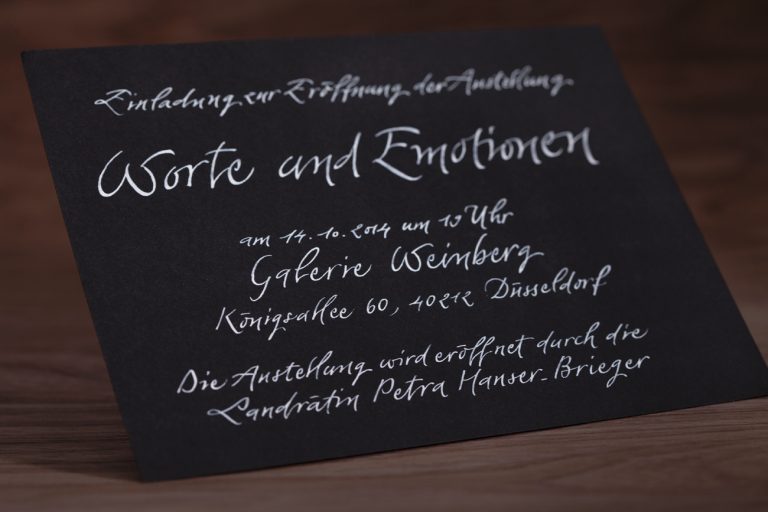 Einladung zur Eröffnung der Austellung
Worte und Emotionen
am 14.10.2014 um 10 Uhr
Galerie Weinberg
Königsahlee 60, 40212 Düsseldorf
Die Austellung wird eröffnet durch die
Landrätin Petra Hanser-Brieger